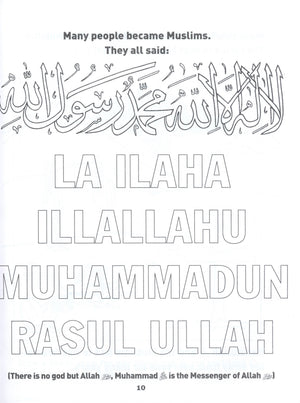 Many people became Muslims.
They all said:
لا إله إلا الله محمد رسول الله
LA ILAHA
ILLALLAHU
MUHAMMADUN
RASUL ULLAH
(There is no god but Allah ﷻ, Muhammad ﷺ is the Messenger of Allah ﷻ)
10